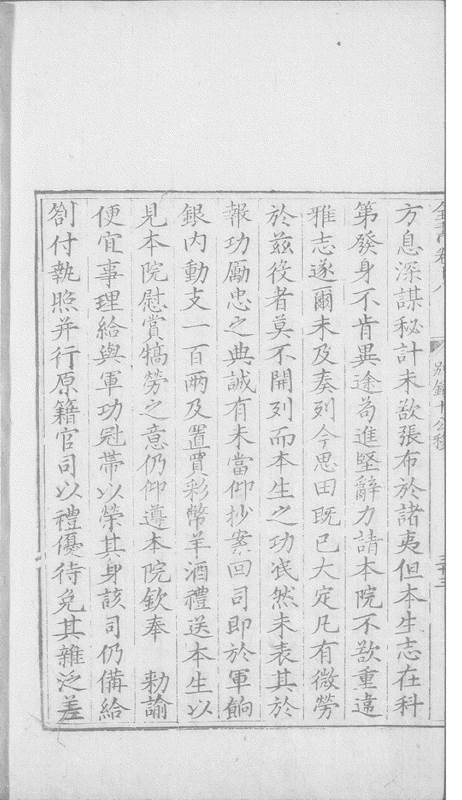 方息深謀秘計未欲張布於諸夷但本生志在科
第發身不肯異途苟進堅辭力請本院不欲重違
雅志遂爾未及奏列今思田既已大定凡有微勞
於茲役者莫不開列而本生之功泯然未表其於
報功勵忠之典誠有未當仰抄案回司即於軍餉
銀内動支一百兩及置買彩幣羊酒禮送本生以
見本院慰賞犒勞之意仍仰遵本院欽奉　勑諭
便宜事理給與軍功冠帶以榮其身該司仍備給
劄付執照并行原籍官司以禮優待免其雜泛差